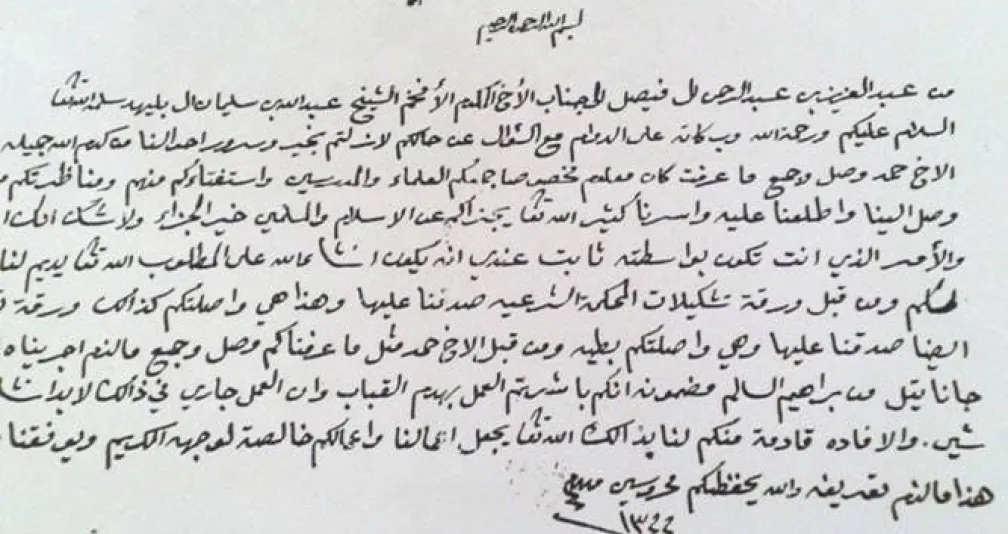 بسم الله الرحمن الرحيم
من عبد العزيز بن عبد الرحمن ال فيصل الى جناب الأخ المكرم الأفخم الشيخ عبد الله بن سليمان ال بليهد سلمه الله تعا
السلام عليكم ورحمة الله وبركاته على الدوام مع السؤال عن حالكم لازلتم بخير وسرور احوالنا من كرم الله جميله
الاخ حمد وصل وجميع ما عرفت كان معلوم مخصوصا جوابكم العلماء والمدرسين واستفتاءكم منهم ومناظرتكم
وصل الينا واطلعنا عليه واسرنا كثير الله تعا يجزاكم عن الاسلام والمسلمين خير الجزاء ولا شك انك
والأمر الذي انت تكون بواسطته ثابت عندي انه يكون انشا الله على المطلوب الله تعا يديم لنا
ومن قبل ورقة تشكيلات المحكمة الشرعيه صدقنا عليها وهذا هي واصلتكم كذالك ورقة
ايضا صدقنا عليها وهي واصلتكم بطيه ومن قبل الاخ حمد مثل ما عرفناكم وصل وجميع مالزم اجريناه
جانا تيل من براهيم السالم مضمونه انكم باشرتم العمل بهدم القباب وان العمل جاري في ذالك لابد انشا
شين. والافاده قادمة منكم لنا بذالك الله تعا يجعل اعمالنا واعمالكم خالصة لوجهه الكريم ويوفقنا
هذا مالزم تعريفه والله يحفظكم محروسين
١٣٤٤